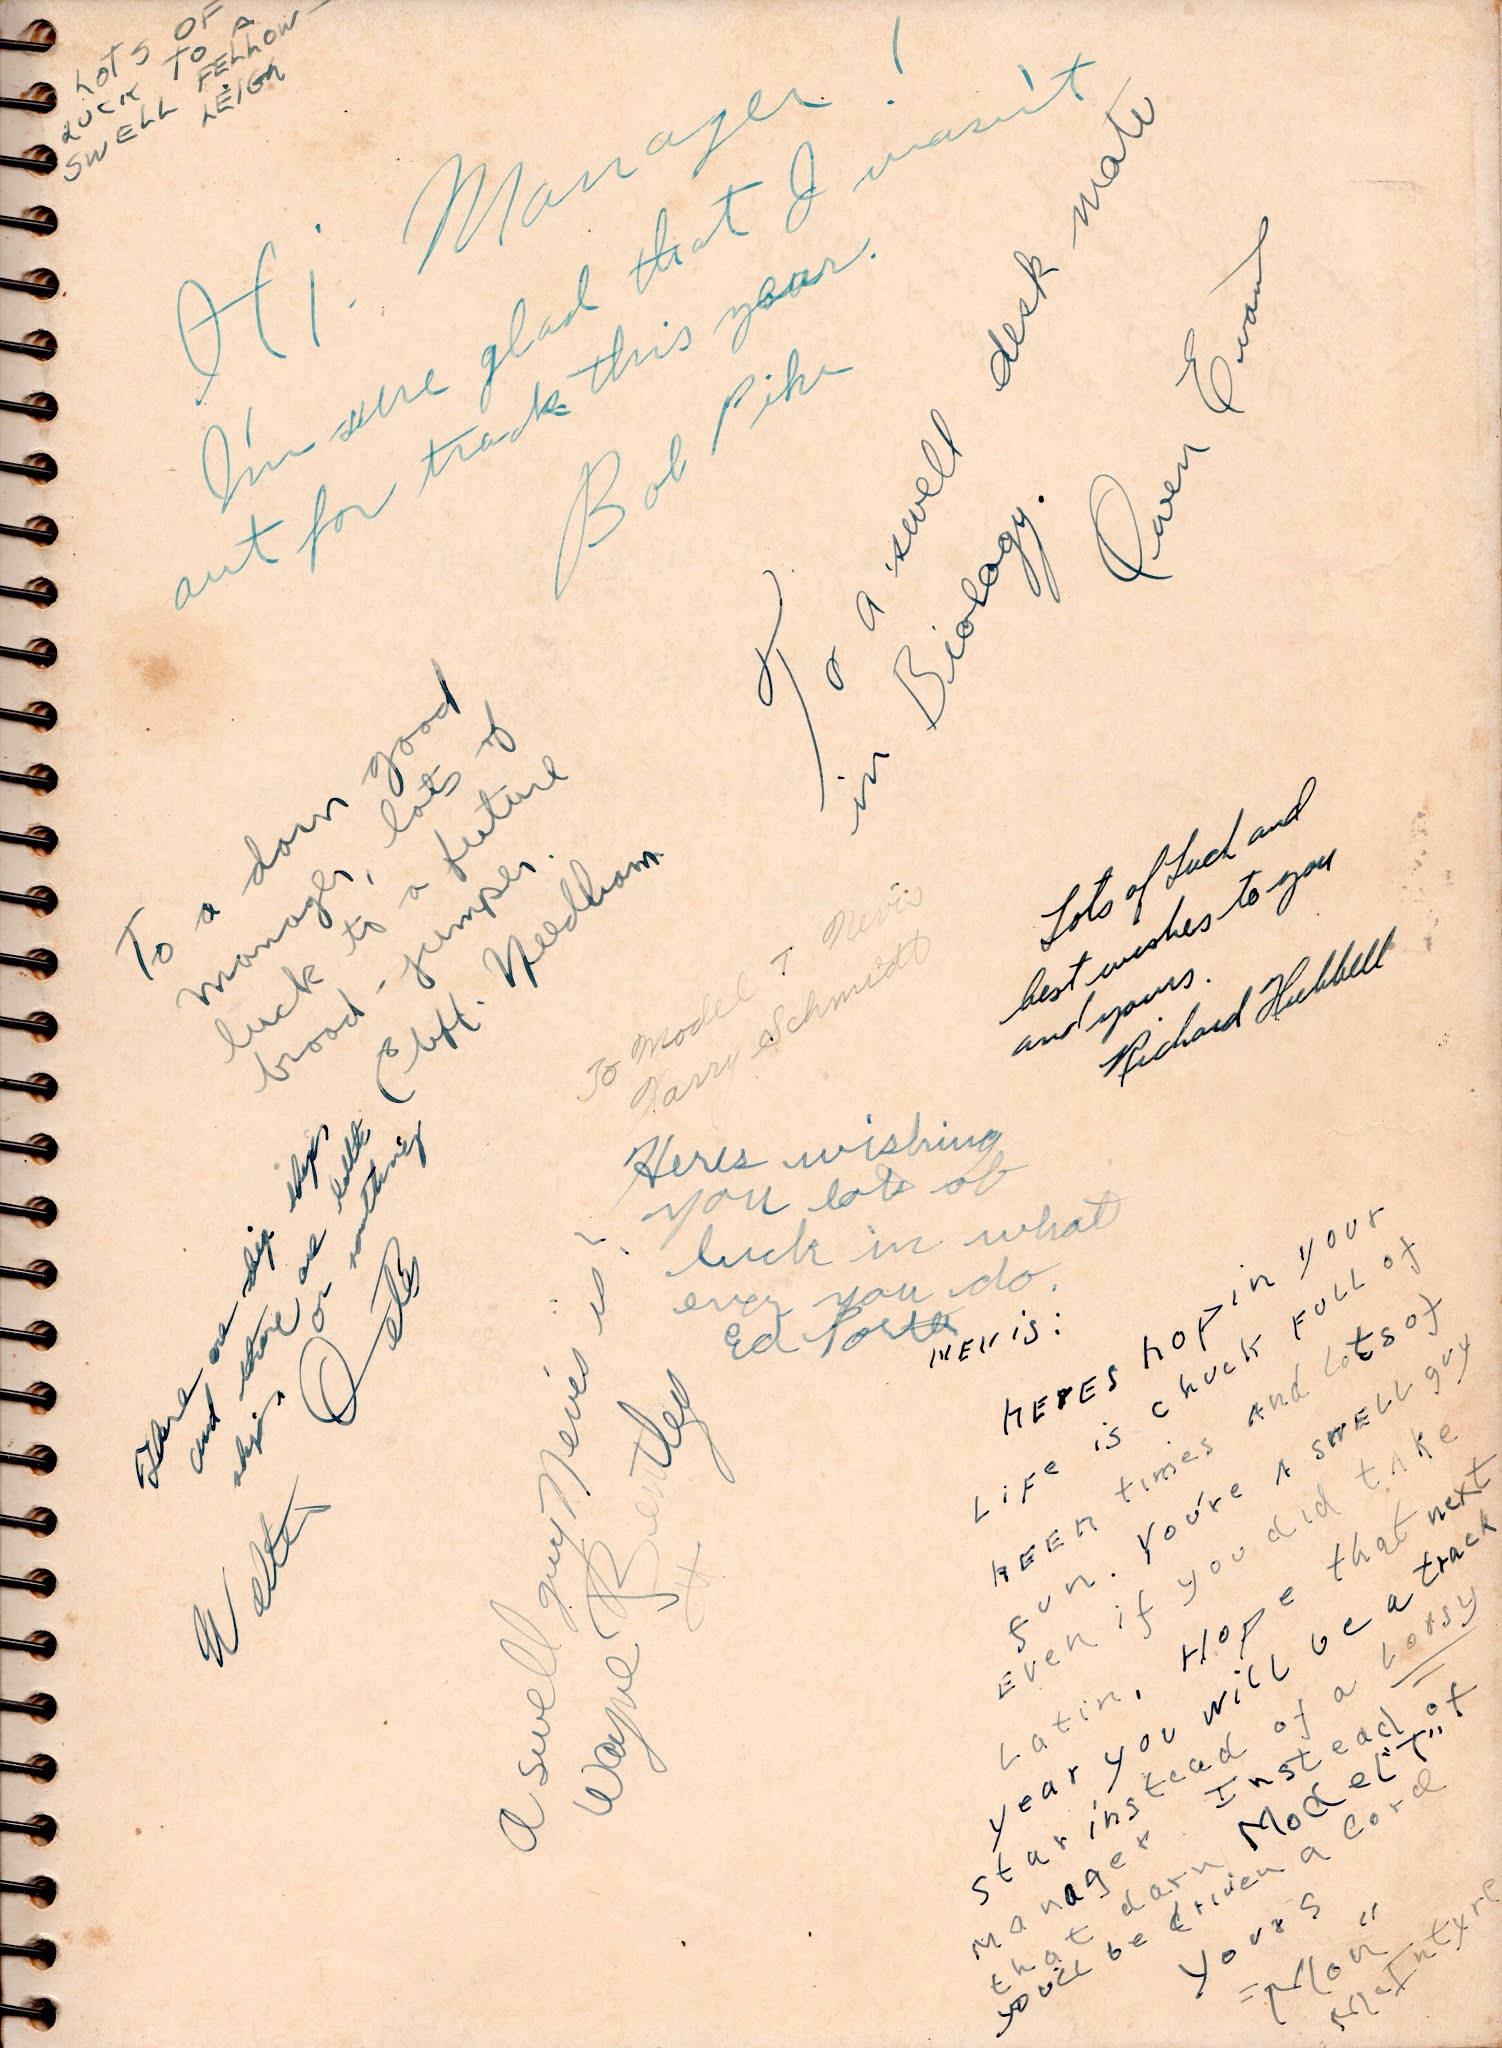 LOTS OF
LUCK TO A
SWELL FELLOW—
LEIGH
Hi. Manager!
I'm sure glad that I wasn't
out for track this year.
Bob Pike
To a swell desk mate
in Biology.
Owen Evans
To a darn good
manager, lots of
luck to a future
broad-jumper.
Cliff. Needham
To Model T Nevis
Harry Schmidt
Lots of Luck and
best wishes to you
and yours.
Richard Hubbell
Heres wishing
you lots of
luck in what
ever you do.
Ed
There are big ships
and there are little
ships or
Walter
A swell guy Nevis is
Wayne Bentley
Nevis:
HERES HOPin YOUr
LiFe is chuck FULL of
KEEN times And Lots of
fun. You're A SWELL guy
Even if you did tAke
Latin. Hope that next
year you will be a track
star instead of a Lousy
Manager. Instead of
that darn Model "T"
you'll be driven a Cord
Yours
McIntyre